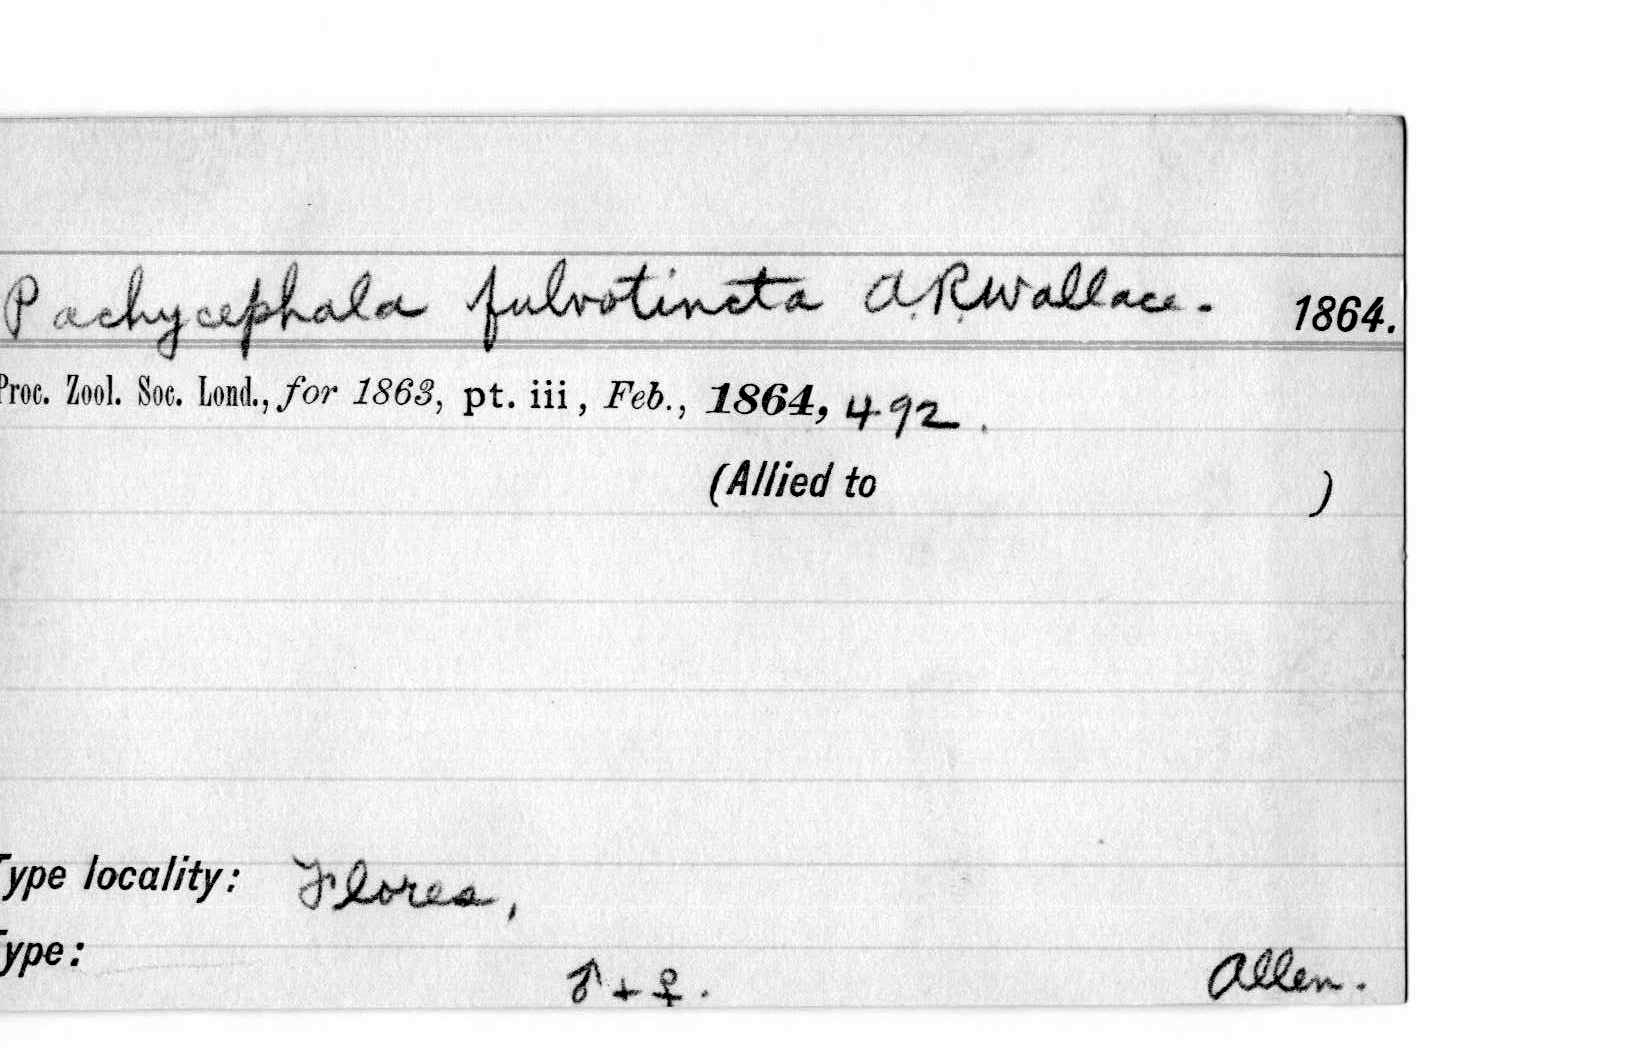 Pachycephala fulvotincta A.R.Wallace. 1864.
Proc. Zool. Soc. Lond., for 1863, pt. iii, Feb., 1864, 492.
(Allied to )
Type locality: Flores,
Type:
♂ + ♀.
Allen.